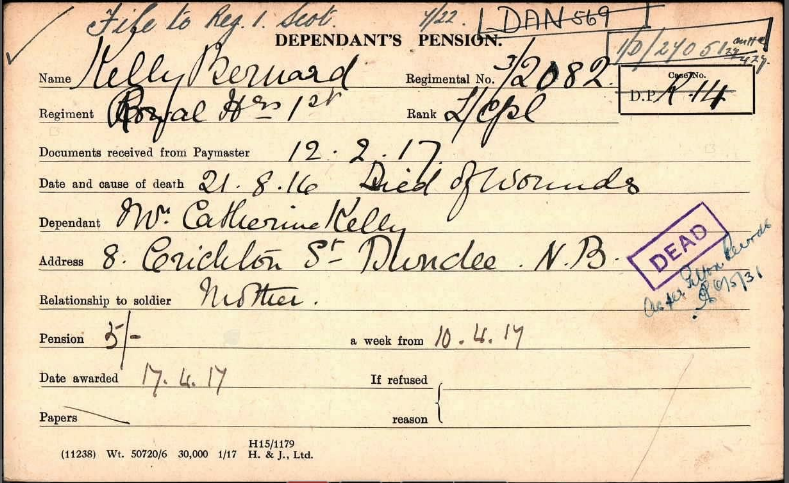 File to Reg. 1. Scot. 4/22. LDAN 569
DEPENDANT'S PENSION.
1/D/2405
Name Kelly Bernard Regimental No. 3/2082 Case No.
Regiment Royal Hrs 1st Rank L/Cpl D.P. K 14
Documents received from Paymaster 12.2.17
Date and cause of death 21.8.16 Died of Wounds
Dependant Mrs. Catherine Kelly
Address 8. Crichton St Dundee. N.B.
DEAD
Relationship to soldier Mother.
6/5/31
Pension 5/- a week from 10.4.17
Date awarded 17.4.17 If refused
Papers reason
H15/1179
(11238) Wt. 50720/6 30,000 1/17 H. & J., Ltd.